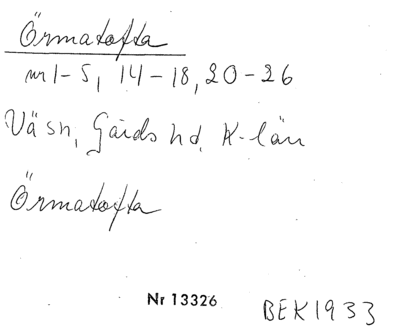 Örmatofta
nr 1-5, 14-18, 20-26
Väsn, Gärds hd, K-län
Örmatofta
Nr 13326 BEK1933